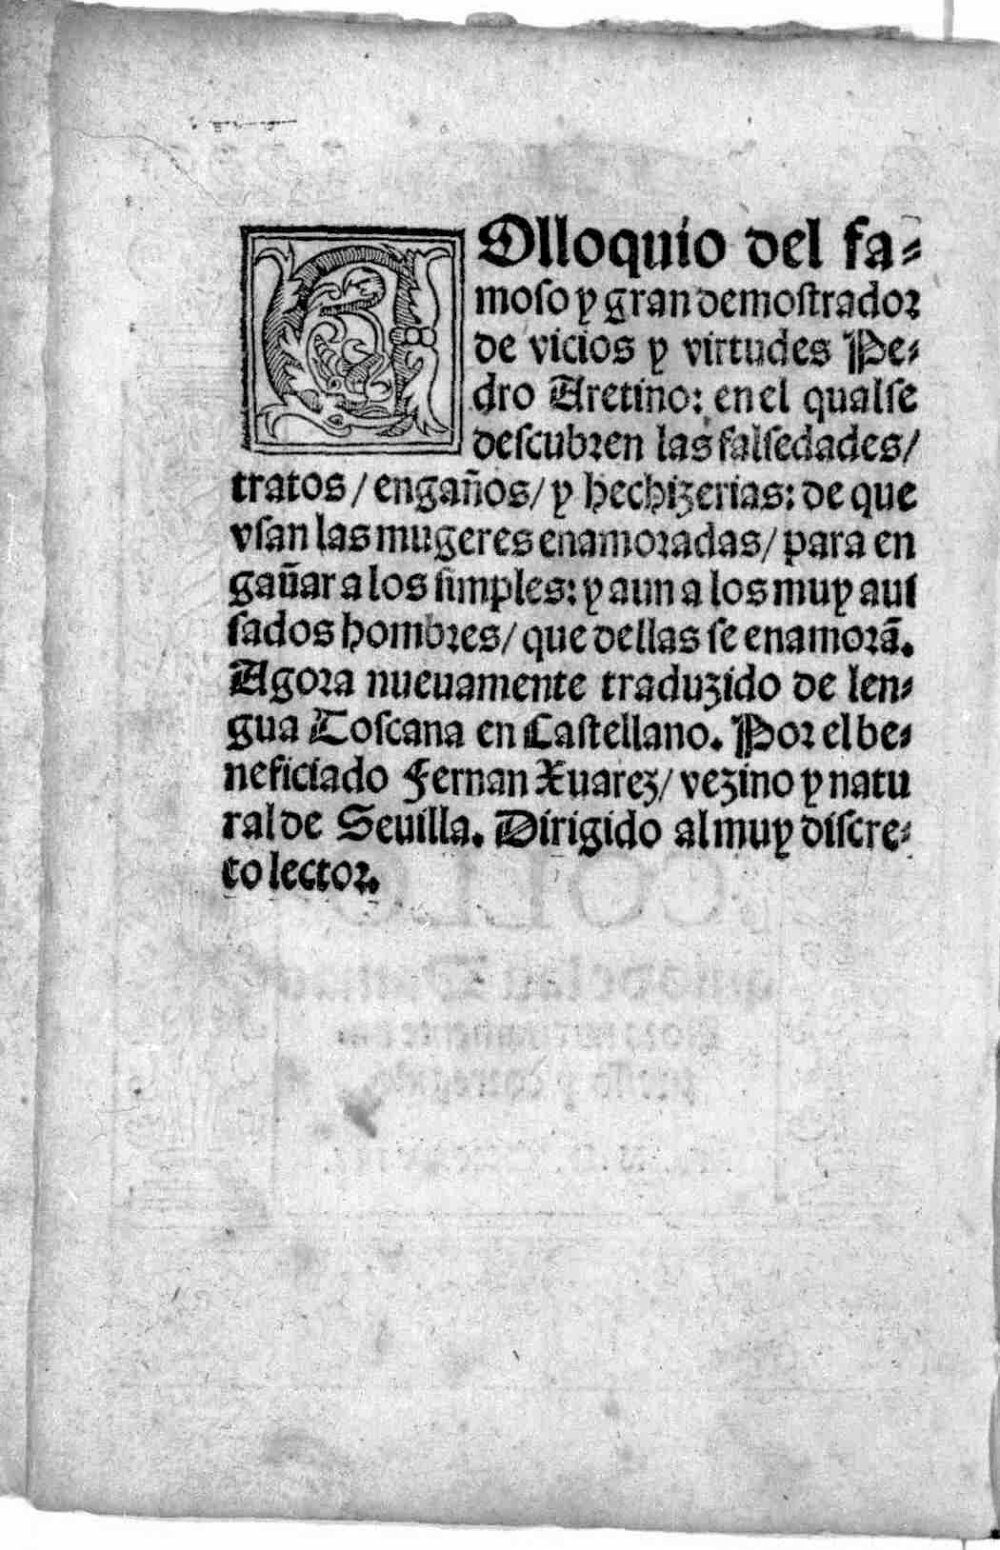 COlloquio del fa-
moso y gran demostrador
de vicios y virtudes Pe-
dro Aretino: en el qual se
descubren las falsedades/
tratos/ engaños/ y hechizerias: de que
vsan las mugeres enamoradas/ para en
gañar a los simples: y aun a los muy aui
sados hombres/ que dellas se enamorã.
Agora nueuamente traduzido de len-
gua Toscana en Castellano. Por el be-
neficiado Fernan Xuarez/ vezino y natu
ral de Seuilla. Dirigido al muy discre-
to lector.